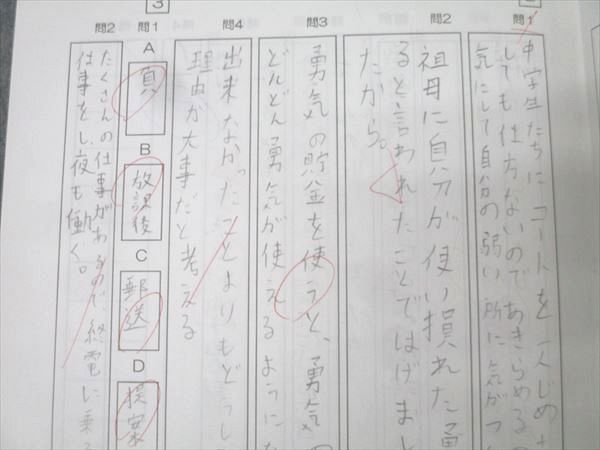 問1
中学生たちにコートを一人じめさ
しても仕方ないのであきらめるの
気にして自分の弱い所に気がつ
問2
祖母に自分が使い損れた勇
ると言われたことではげまし
たから。
問3
勇気の貯金を使うと、勇気の
どんどん勇気が使えるようにな
問4
出来なかったことよりもどうし
理由が大事だと考える
3
問1
A
負
B
放課後
C
郵送
D
提案
問2
たくさんの仕事があるので、終電に乗る
仕事をし、夜も働く。